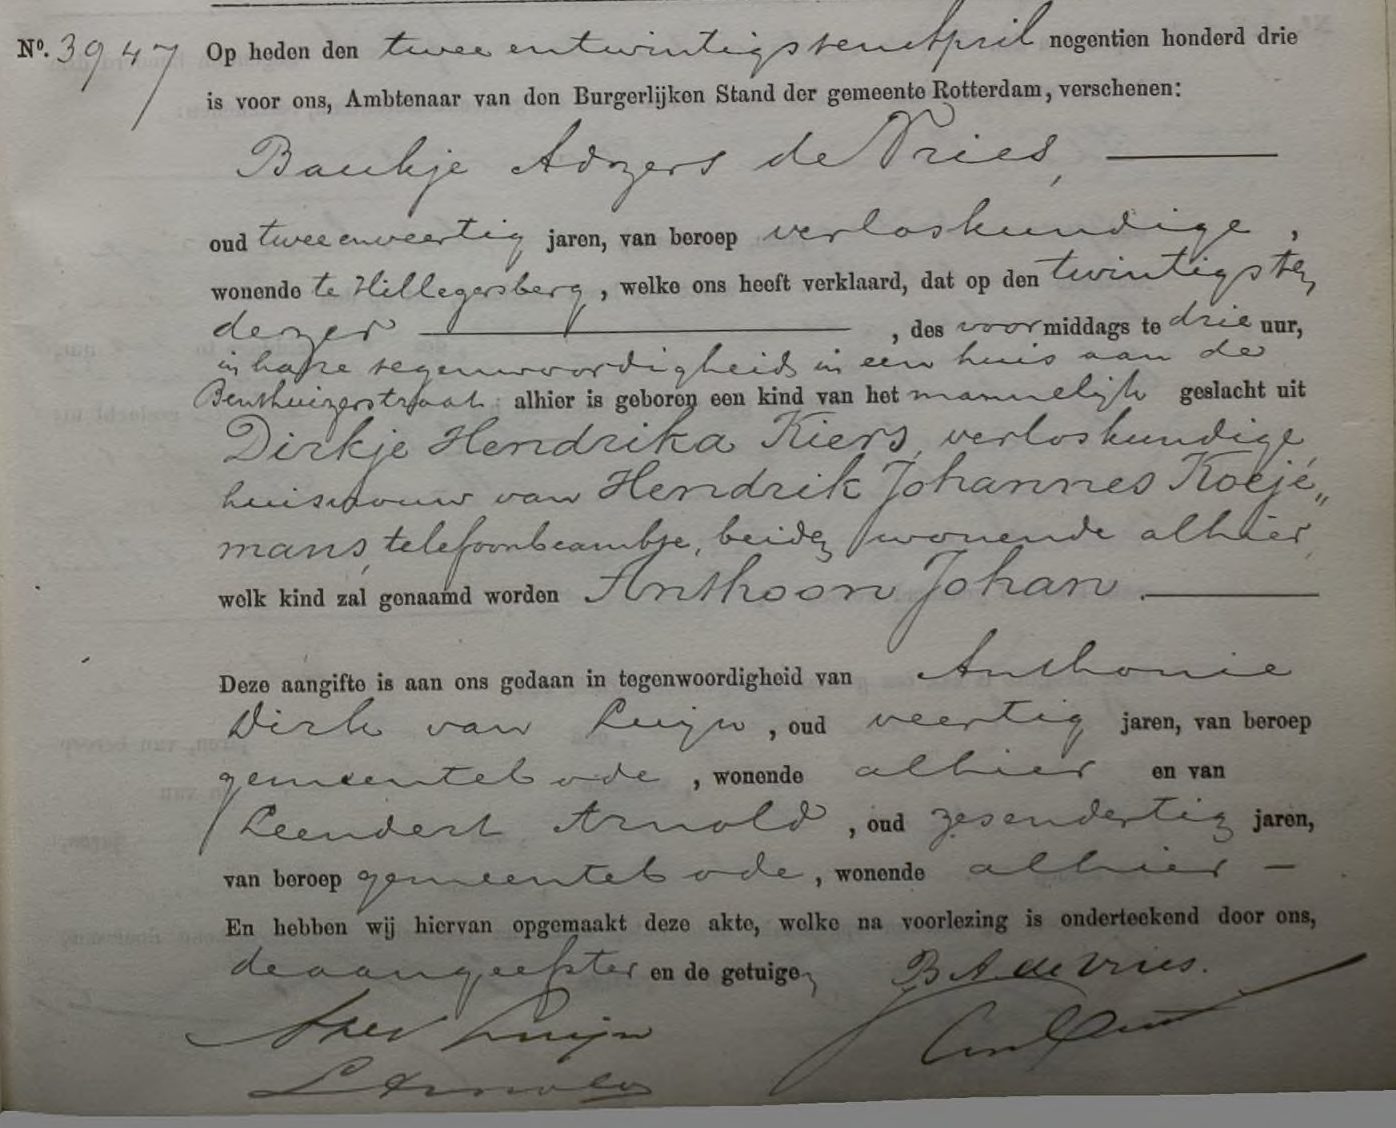 No. 3947 Op heden den twee en twintigsten April negentien honderd drie
is voor ons, Ambtenaar van den Burgerlijken Stand der gemeente Rotterdam, verschenen:
Baukje Adzers de Vries,
oud tweeenveertig jaren, van beroep verloskundige,
wonende te Hillegersberg, welke ons heeft verklaard, dat op den twintigsten
dezer, des voormiddags te drie uur,
in hare tegenwoordigheid in een huis aan de
Benthuizerstraat alhier is geboren een kind van het mannelijk geslacht uit
Dirkje Hendrika Kiers, verloskundige,
huisvrouw van Hendrik Johannes Koejé„
mans, telefoonbeambte, beiden wonende alhier,
welk kind zal genaamd worden Anthoon Johan.
Deze aangifte is aan ons gedaan in tegenwoordigheid van Anthonie
Dirk van Luijn, oud veertig jaren, van beroep
gemeentebode, wonende alhier en van
Leendert Arnold, oud zesendertig jaren,
van beroep gemeentebode, wonende alhier —
En hebben wij hiervan opgemaakt deze akte, welke na voorlezing is onderteekend door ons,
de aangeefster en de getuigen B A de Vries.
Luijn
L Arnold